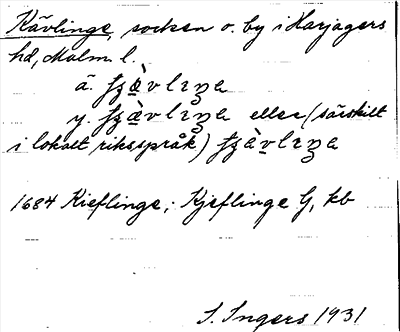 Kävlinge, socken o. by i Harjagers
hd, Malm. l.
ä. ʄʒæ̀vlɪŋa
y. ʄʒæ̀vlɪŋa eller (särskilt
i lokalt riksspråk) ʄʒæ̀vlɪŋa
1684 Kieflinge; Kjeflinge G, kb
I. Ingers 1931